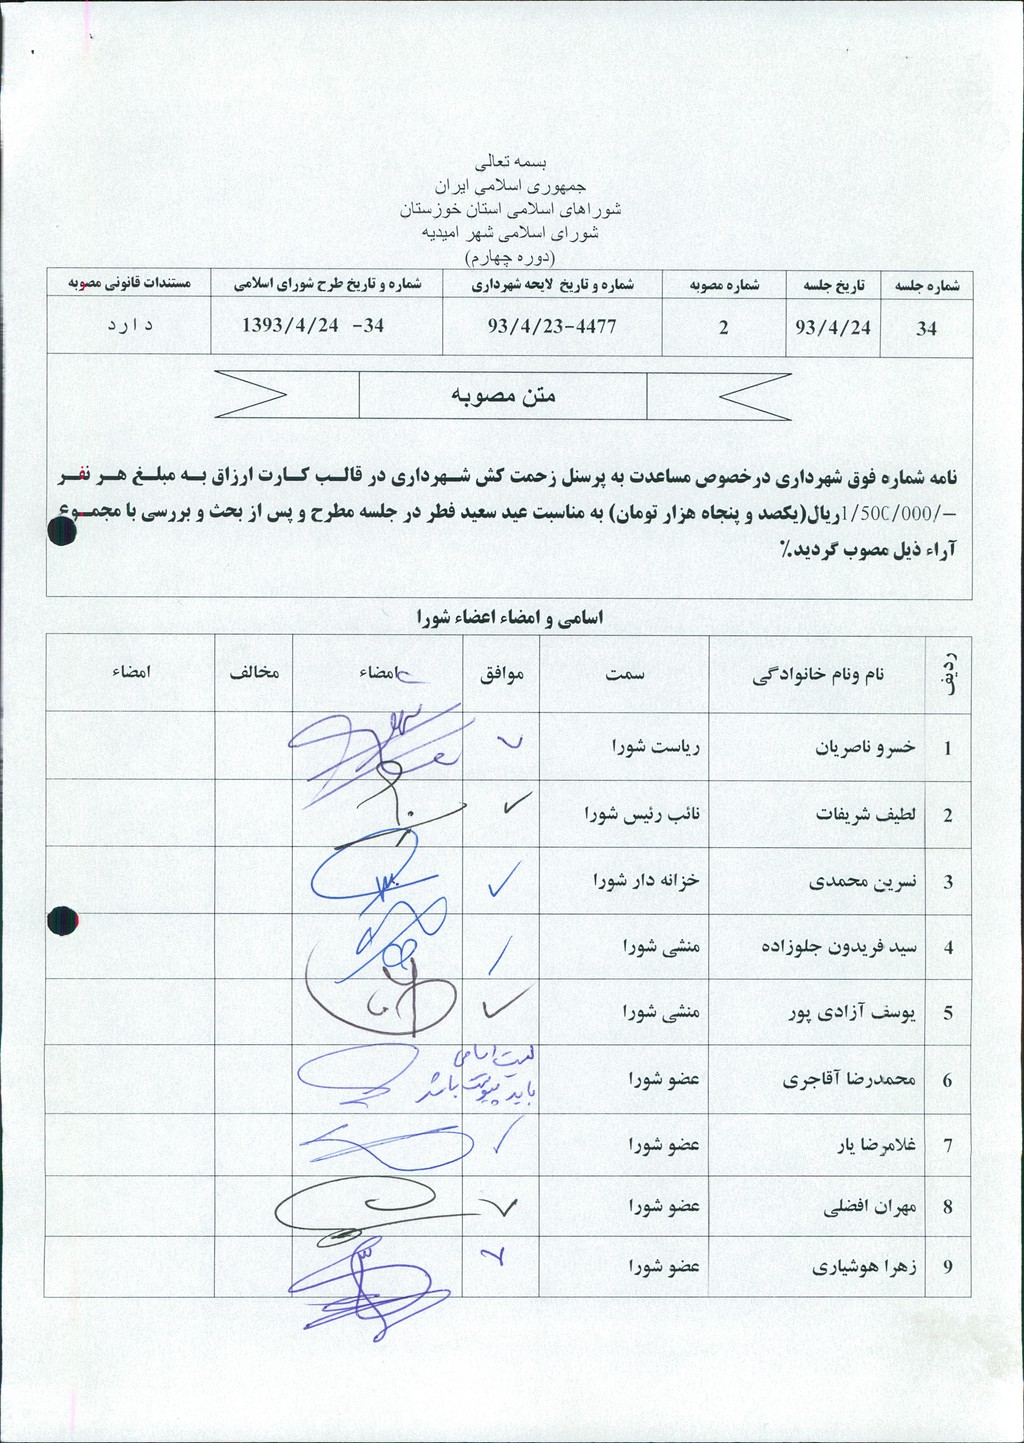 بسمه تعالی
جمهوری اسلامی ایران
شوراهای اسلامی استان خوزستان
شورای اسلامی شهر امیدیه
(دوره چهارم)
شماره جلسه تاریخ جلسه شماره مصوبه شماره و تاریخ لایحه شهرداری شماره و تاریخ طرح شورای اسلامی مستندات قانونی مصوبه
34 93/4/24 2 93/4/23-4477 1393/4/24 -34 دارد
متن مصوبه
نامه شماره فوق شهرداری درخصوص مساعدت به پرسنل زحمت کش شهرداری در قالب کارت ارزاق به مبلغ هر نفر
1/500/000/- ریال(یکصد و پنجاه هزار تومان) به مناسبت عید سعید فطر در جلسه مطرح و پس از بحث و بررسی با مجموع
آراء ذیل مصوب گردید.٪
اسامی و امضاء اعضاء شورا
ردیف نام ونام خانوادگی سمت موافق امضاء مخالف امضاء
1 خسرو ناصریان ریاست شورا
2 لطیف شریفات نائب رئیس شورا
3 نسرین محمدی خزانه دار شورا
4 سید فریدون جلوزاده منشی شورا
5 یوسف آزادی پور منشی شورا
6 محمدرضا آقاجری عضو شورا لیست اسامی
باید پیوست باشد
7 غلامرضا یار عضو شورا
8 مهران افضلی عضو شورا
9 زهرا هوشیاری عضو شورا